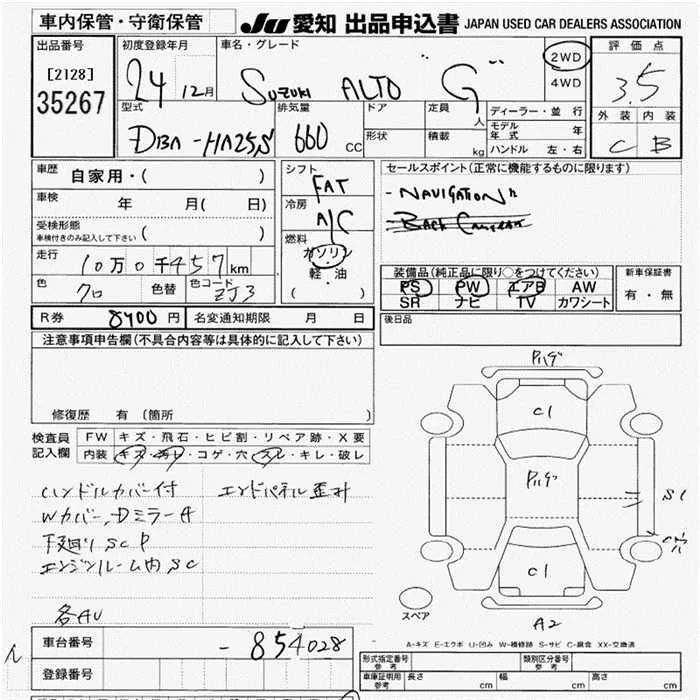 車内保管・守衛保管
JU 愛知 出品申込書 JAPAN USED CAR DEALERS ASSOCIATION
出品番号
[2128]
35267
初度登録年月
24 12月
車名・グレード
SUZUKI ALTO "G"
2WD
4WD
評価点
3.5
外装 内装
C B
型式
DBA-HA25S
排気量
660 CC
ドア
形状
定員
人
積載
kg
ディーラー・並行
モデル年式 年
ハンドル 左・右
車歴 自家用・( )
車検 年 月( 日)
受検形態
車検付きのみ記入して下さい ( )
走行
10万0千457km
色 クロ 色替 色コード ZJ3
シフト
FAT
冷房
A/C
燃料
ガソリン
軽・油
( )
セールスポイント(正常に機能するものに限ります)
-NAVIGATION"
装備品(純正品に限り○をつけてください)
PS PW エアB AW
SR ナビ TV カワシート
新車保証書
有・無
R券 8400円 名変通知期限 月 日
後日品
注意事項申告欄(不具合内容等は具体的に記入して下さい)
修復歴 有 (箇所 )
検査員
記入欄
FW キズ・飛石・ヒビ割・リペア跡・X要
内装 キズ・汚レ・コゲ・穴・スレ・キレ・破レ
ハンドルカバー付 エンドパネル歪み
Wカバー、Dミラー A
下廻り SC P
エンジンルーム内 SC
各AU
C1
C1
A2
スペア
A-キズ E-エクボ U-凹み W-補修跡 S-サビ C-腐食 XX-交換済
車台番号 -854028
登録番号
形式指定番号
参考
類別区分番号
参考
車庫証明用
参考
長さ cm 幅 cm 高さ cm